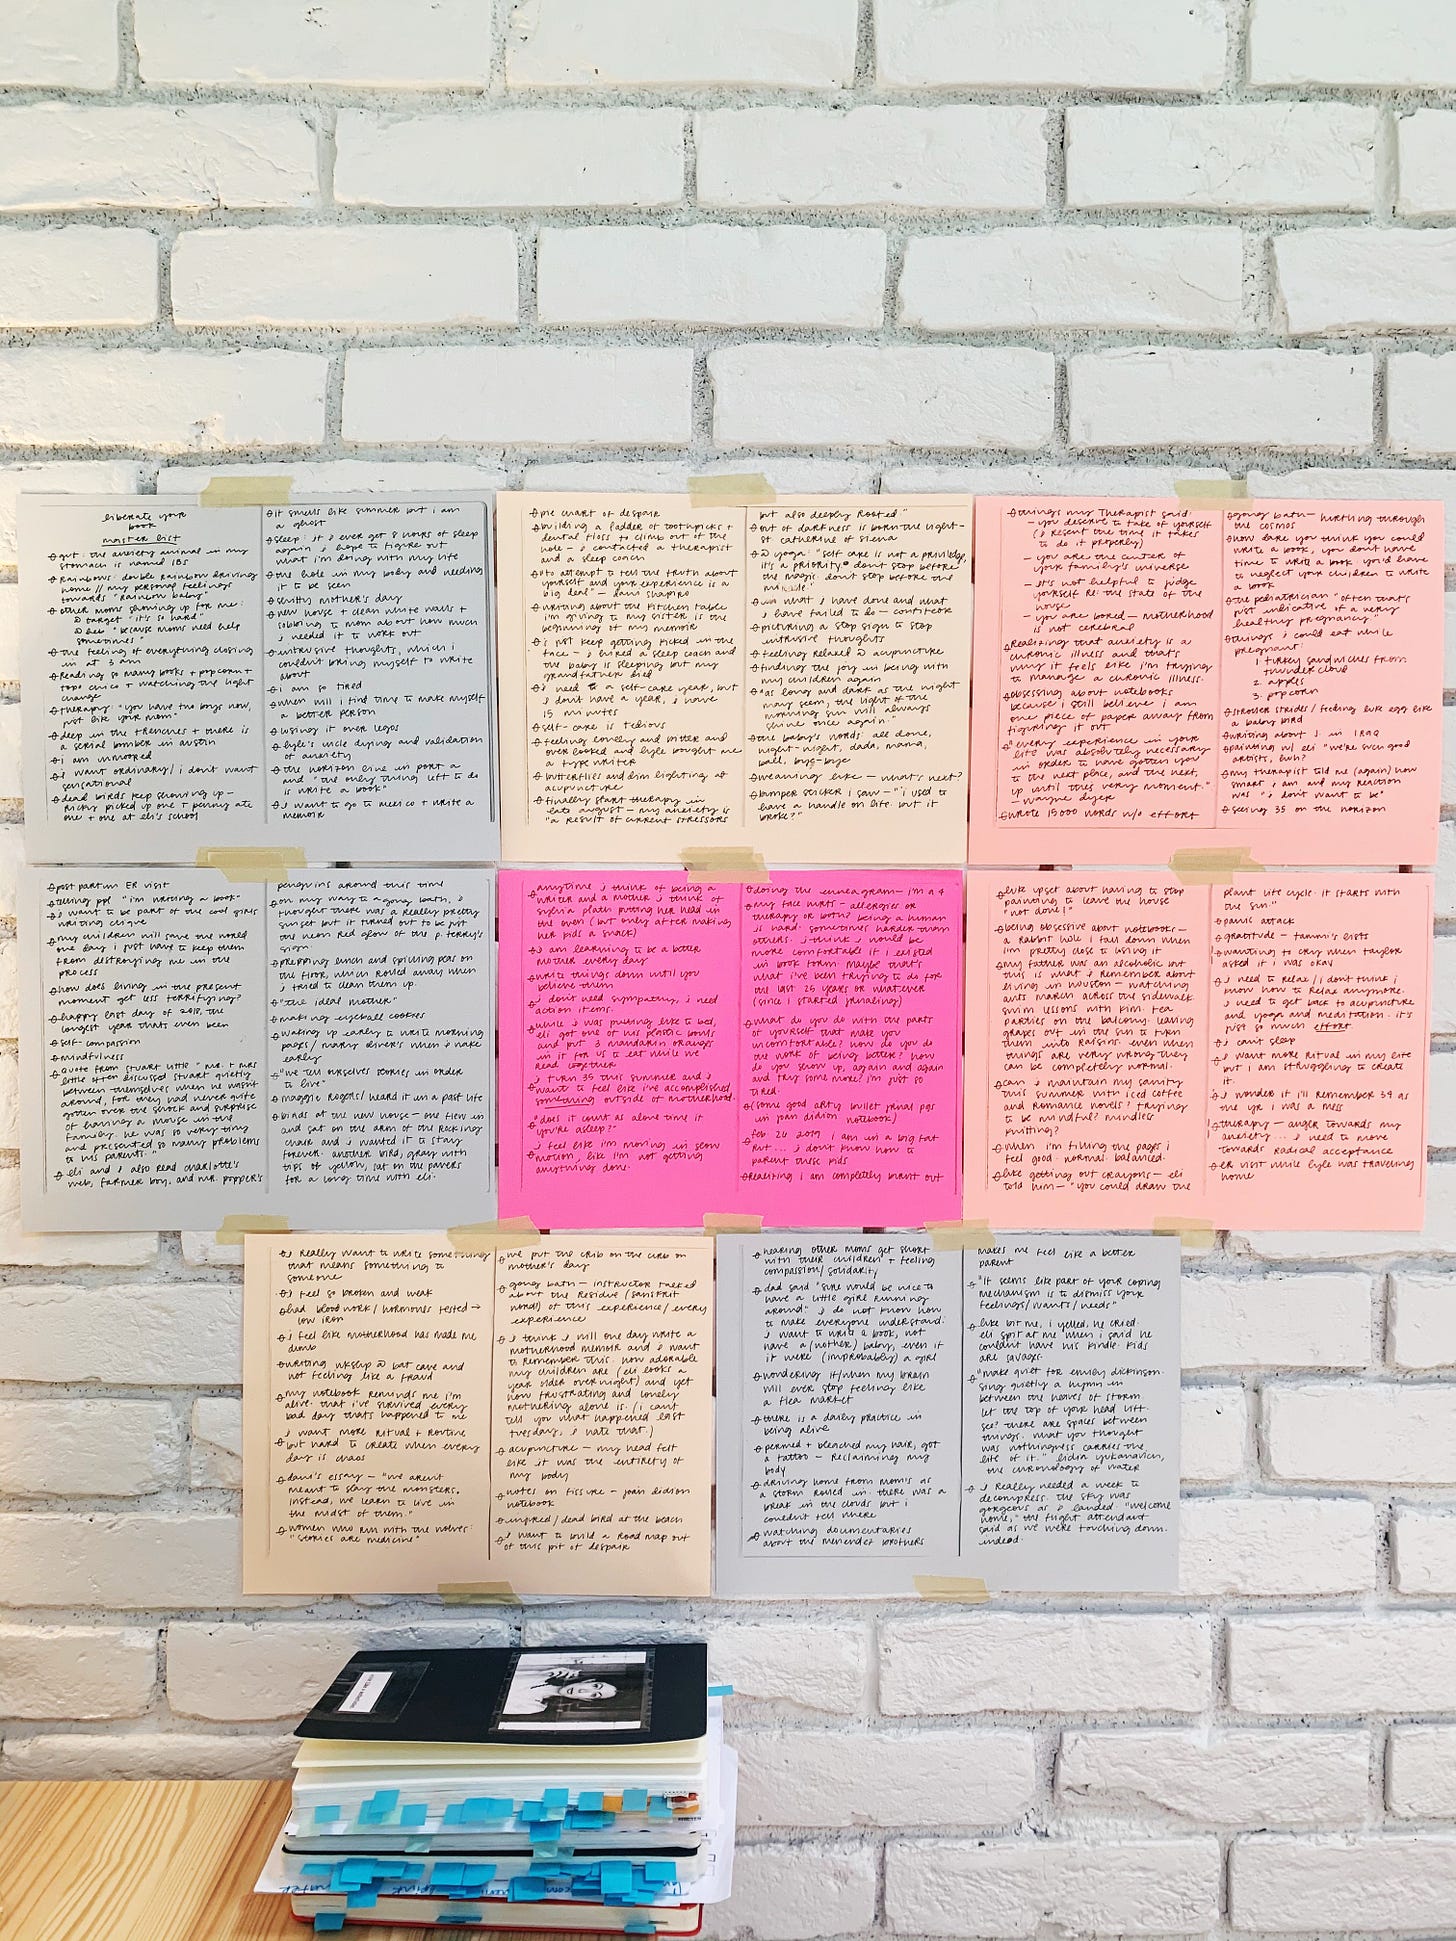 liberate your
book
master list
gut: the anxiety animal in my
stomach is named IBS
Rainbows: double rainbow driving
home // my personal feelings
towards "rainbow baby"
other moms showing up for me:
target "it's so hard"
heb "because moms need help
sometimes"
the feeling of everything closing
in at 3 am
Reading so many books + popcorn +
topo chico + watching the light
change
therapy: "you have two boys now,
just like your mom"
deep in the trenches + there is
a serial bomber in austin
i am unmoored
i want ordinary / i don't want
sensational
dead birds keep showing up –
Ricky picked up one + penny ate
one + one at eli's school
it smells like summer but i am
a ghost
sleep: if i ever get 8 hours of sleep
again i hope to figure out
what i'm doing with my life
the hole in my body and needing
it to be seen
shitty mother's day
new house + clean white walls +
sobbing to mom about how much
i needed it to work out
intrusive thoughts, which i
couldn't bring myself to write
about
i am so tired
when will i find time to make myself
a better person
losing it over legos
lyle's uncle dying and validation
of anxiety
the horizon line in port a
and "the only thing left to do
is write a book"
i want to go to mexico + write a
memoir
pie chart of despair
building a ladder of toothpicks +
dental floss to climb out of the
hole – i contacted a therapist
and a sleep coach
"to attempt to tell the truth about
yourself and your experience is a
big deal" – dani shapiro
writing about the kitchen table
i'm giving to my sister is the
beginning of my memoir
i not keep getting kicked in the
face – i hired a sleep coach and
the baby is sleeping but my
grandfather died
i need to a self-care year, but
i don't have a year, i have
15 minutes
self-care is tedious
feeling lonely and bitter and
overlooked and lyle bought me
a type writer
butterflies and dim lighting at
acupuncture
finally start therapy in
late august – my anxiety is
"a result of current stressors
but also deeply rooted"
out of darkness is born the light –
st catherine of siena
@ yoga: "self care is not a privilege,
it's a priority" don't stop before
the magic. don't stop before the
miracle.
what i have done and what
i have failed to do – confiteor
picturing a stop sign to stop
intrusive thoughts
feeling relaxed @ acupuncture
finding the joy in being with
my children again
"as long and dark as the night
may seem, the light of the
morning sun will always
shine once again."
the baby's words: all done,
night-night, dada, mama,
ball, bye-bye
weaning luke – what's next?
bumper sticker i saw – "i used to
have a handle on life but it
broke?"
things my therapist said:
– you deserve to take of yourself
(i resent the time it takes
to do it properly)
– you are the center of
your family's universe
– it's not helpful to judge
yourself re: the state of the
house
– you are bored – motherhood
is not cerebral
Realizing that anxiety is a
chronic illness and that's
why it feels like i'm trying
to manage a chronic illness.
obsessing about notebooks
because i still believe i am
one piece of paper away from
figuring it out
"every experience in your
life was absolutely necessary
in order to have gotten you
to the next place, and the next,
up until this very moment."
– wayne dyer
wrote 15000 words w/o effort
gong bath – hurtling through
the cosmos
how dare you think you could
write a book, you don't have
time to write a book you'd have
to neglect your children to write
a book
the pediatrician "often that's
just indicative of a very
healthy pregnancy."
things i could eat while
pregnant:
1. turkey sandwiches from
thundercloud
2. apples
3. popcorn
stroller strides / feeling like egg like
a baby bird
writing about J in IRAQ
painting w/ eli "we're such good
artists, huh?"
my therapist told me (again) how
smart i am and my reaction
was "i don't want to be"
seeing 35 on the horizon
post partum ER visit
telling ppl "i'm writing a book"
i want to be part of the cool girls
writing clique
my children will save the world
one day i just have to keep them
from destroying me in the
process
how does living in the present
moment get less terrifying?
happy last day of 2018, the
longest year that's even been
self-compassion
mindfulness
quote from stuart little "mr. + mrs
little often discussed stuart quietly
between themselves when he wasn't
around, for they had never quite
gotten over the shock and surprise
of having a mouse in the
family. he was so very tiny
and presented so many problems
to his parents."
eli and i also read charlotte's
web, farmer boy, and mr. popper's
penguins around this time
on my way to a gong bath, i
thought there was a really pretty
sunset but it turned out to be just
the neon red glow of the p. terry's
sign.
prepping lunch and spilling peas on
the floor, which rolled away when
i tried to clean them up.
"the ideal mother"
making eyeball cookies
waking up early to write morning
pages / mary oliver's when i wake
early
"we tell ourselves stories in order
to live"
maggie rogers / heard it in a past life
birds at the new house – one flew in
and sat on the arm of the rocking
chair and i wanted it to stay
forever. another bird, gray with
tips of yellow, sat on the pavers
for a long time with eli.
anytime i think of being a
writer and a mother i think of
sylvia plath putting her head in
the oven (but only after making
her kids a snack)
i am learning to be a better
mother every day
write things down until you
believe them
i don't need sympathy, i need
action items.
while i was putting luke to bed,
eli got one of his plastic bowls
and put 3 mandarin oranges
in it for us to eat while we
read together
i turn 35 this summer and i
want to feel like i've accomplished
something outside of motherhood.
"does it count as alone time if
you're asleep?"
i feel like i'm moving in slow
motion, like i'm not getting
anything done.
doing the enneagram – i'm a 4
my face hurts – allergies or
therapy or both? being a human
is hard. sometimes harder than
others. i think i would be
more comfortable if i existed
in book form. maybe that's
what i've been trying to do for
the last 25 years or whatever
(since i started journaling)
what do you do with the parts
of yourself that make you
uncomfortable? how do you do the
work of being better? how
do you show up, again and again
and try some more? i'm just so
tired.
(some good arty bullet jrnal pgs
in joan didion notebook)
feb 26 2019 i am in a big fat
rut... i don't know how to
parent these kids
realizing i am completely burnt out
luke upset about having to stop
painting to leave the house
"not done!"
being obsessive about notebooks –
a rabbit hole i fall down when
i'm pretty close to losing it
my father was an alcoholic but
this is what i remember about
living in houston – watching
ants march across the sidewalk.
swim lessons with kim. tea
parties on the balcony. leaving
grapes out in the sun to turn
them into raisins. even when
things are very wrong they
can be completely normal.
can i maintain my sanity
this summer with iced coffee
and romance novels? trying
to be mindful? mindless
knitting?
when i'm filling the pages i
feel good. normal. balanced.
luke getting out crayons – eli
told him – "you could draw the
plant life cycle. it starts with
the sun."
panic attack
gratitude – tammi's lists
wanting to cry when taylor
asked if i was okay
i need to relax / i don't think i
know how to relax anymore.
i need to get back to acupuncture
and yoga and meditation. it's
just so much effort.
i can't sleep
i want more ritual in my life
but i am struggling to create
it
i wonder if i'll remember 34 as
the yr i was a mess
therapy – anger towards my
anxiety... i need to move
towards radical acceptance
ER visit while lyle was traveling
home
i really want to write something
that means something to
someone
i feel so broken and weak
had blood work / hormones tested →
low iron
i feel like motherhood has made me
dumb
writing wkshp @ bat cave and
not feeling like a fraud
my notebook reminds me i'm
alive. that i've survived every
bad day that's happened to me
i want more ritual + routine
but hard to create when every
day is chaos
dani's essay – "we aren't
meant to slay the monsters.
instead, we learn to live in
the midst of them."
women who run with the wolves:
"stories are medicine"
we put the crib on the curb on
mother's day
gong bath – instructor talked
about the residue (sanskrit
word!) of this experience / every
experience
i think i will one day write a
motherhood memoir and i want
to remember this. how adorable
my children are (eli looks a
year older overnight) and yet
how frustrating and lonely
mothering alone is. (i can't
tell you what happened last
tuesday, i hate that.)
acupuncture – my head felt
like it was the entirety of
my body
notes on tissue – joan didion
notebook
injured / dead bird at the beach
i want to build a road map out
of this pit of despair
hearing other moms get short
with their children + feeling
compassion / solidarity
dad said "sure would be nice to
have a little girl running
around" i do not know how
to make everyone understand:
i want to write a book, not
have a (nother) baby, even if
it were (improbably) a girl
wondering if/when my brain
will ever stop feeling like
a flea market
there is a daily practice in
being alive
permed + bleached my hair, got
a tattoo – reclaiming my
body
driving home from mom's as
a storm rolled in. there was a
break in the clouds but i
couldn't tell where
watching documentaries
about the menendez brothers
makes me feel like a better
parent
"it seems like part of your coping
mechanism is to dismiss your
feelings / wants / needs"
luke bit me, i yelled, he cried.
eli spit at me when i said he
couldn't have his kindle. kids
are savages.
"make quiet for emily dickinson.
sing quietly a hymn in
between the heaves of storm.
let the top of your head lift.
see? there are spaces between
things. what you thought
was nothingness carries the
life of it." lidia yuknavitch,
the chronology of water
i really needed a week to
decompress. the sky was
gorgeous as i landed. "welcome
home," the flight attendant
said as we were touching down.
indeed.